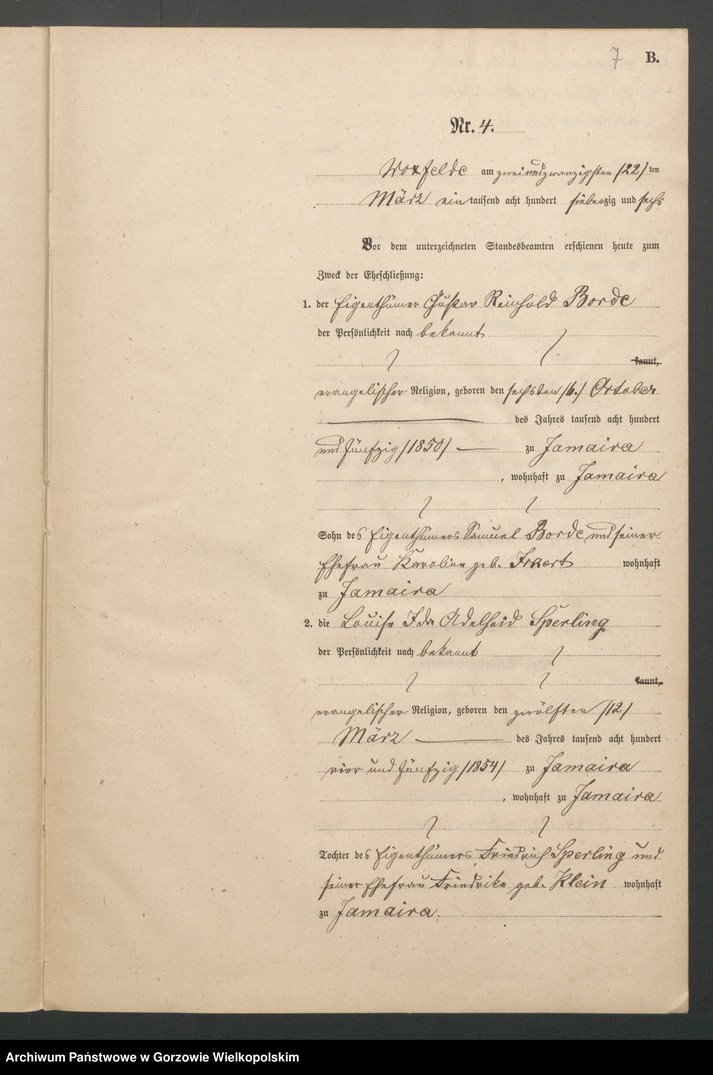 7 B.
Nr. 4.
Woxfelde am zweiundzwanzigsten /22/ ten
März ein tausend acht hundert siebenzig und sechs
Vor dem unterzeichneten Standesbeamten erschienen heute zum
Zweck der Eheschließung:
1. der Eigenthümer Gustav Reinhold Borde
der Persönlichkeit nach bekannt
kannt,
evangelischer Religion, geboren den sechsten /6./ October
des Jahres tausend acht hundert
und fünfzig /1850/ zu Jamaica
, wohnhaft zu Jamaica
Sohn des Eigenthümers Samuel Borde und seiner
Ehefrau Karoline geb. wohnhaft
zu Jamaica
2. die Louise Ida Adelheid Sperling
der Persönlichkeit nach bekannt
kannt,
evangelischer Religion, geboren den zwölften /12/
März des Jahres tausend acht hundert
vier und fünfzig /1854/ zu Jamaica
, wohnhaft zu Jamaica.
Tochter des Eigenthümers Friedrich Sperling und
seiner Ehefrau Friedrike geb. Klein wohnhaft
zu Jamaica.
Archiwum Państwowe w Gorzowie Wielkopolskim